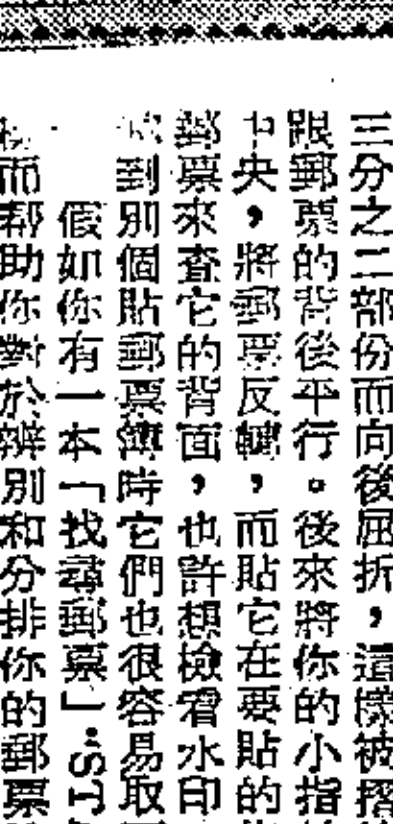 三分之二部份而向後屈折，這樣被摺
跟郵票的背後平行。後來將你的小指
中央，將郵票反轉，而貼它在要貼的
郵票來查它的背面，也許想檢看水印
到別個貼郵票簿時它們也很容易取
假如你有一本「找尋郵票」"ST
而帮助你對於辨別和分排你的郵票